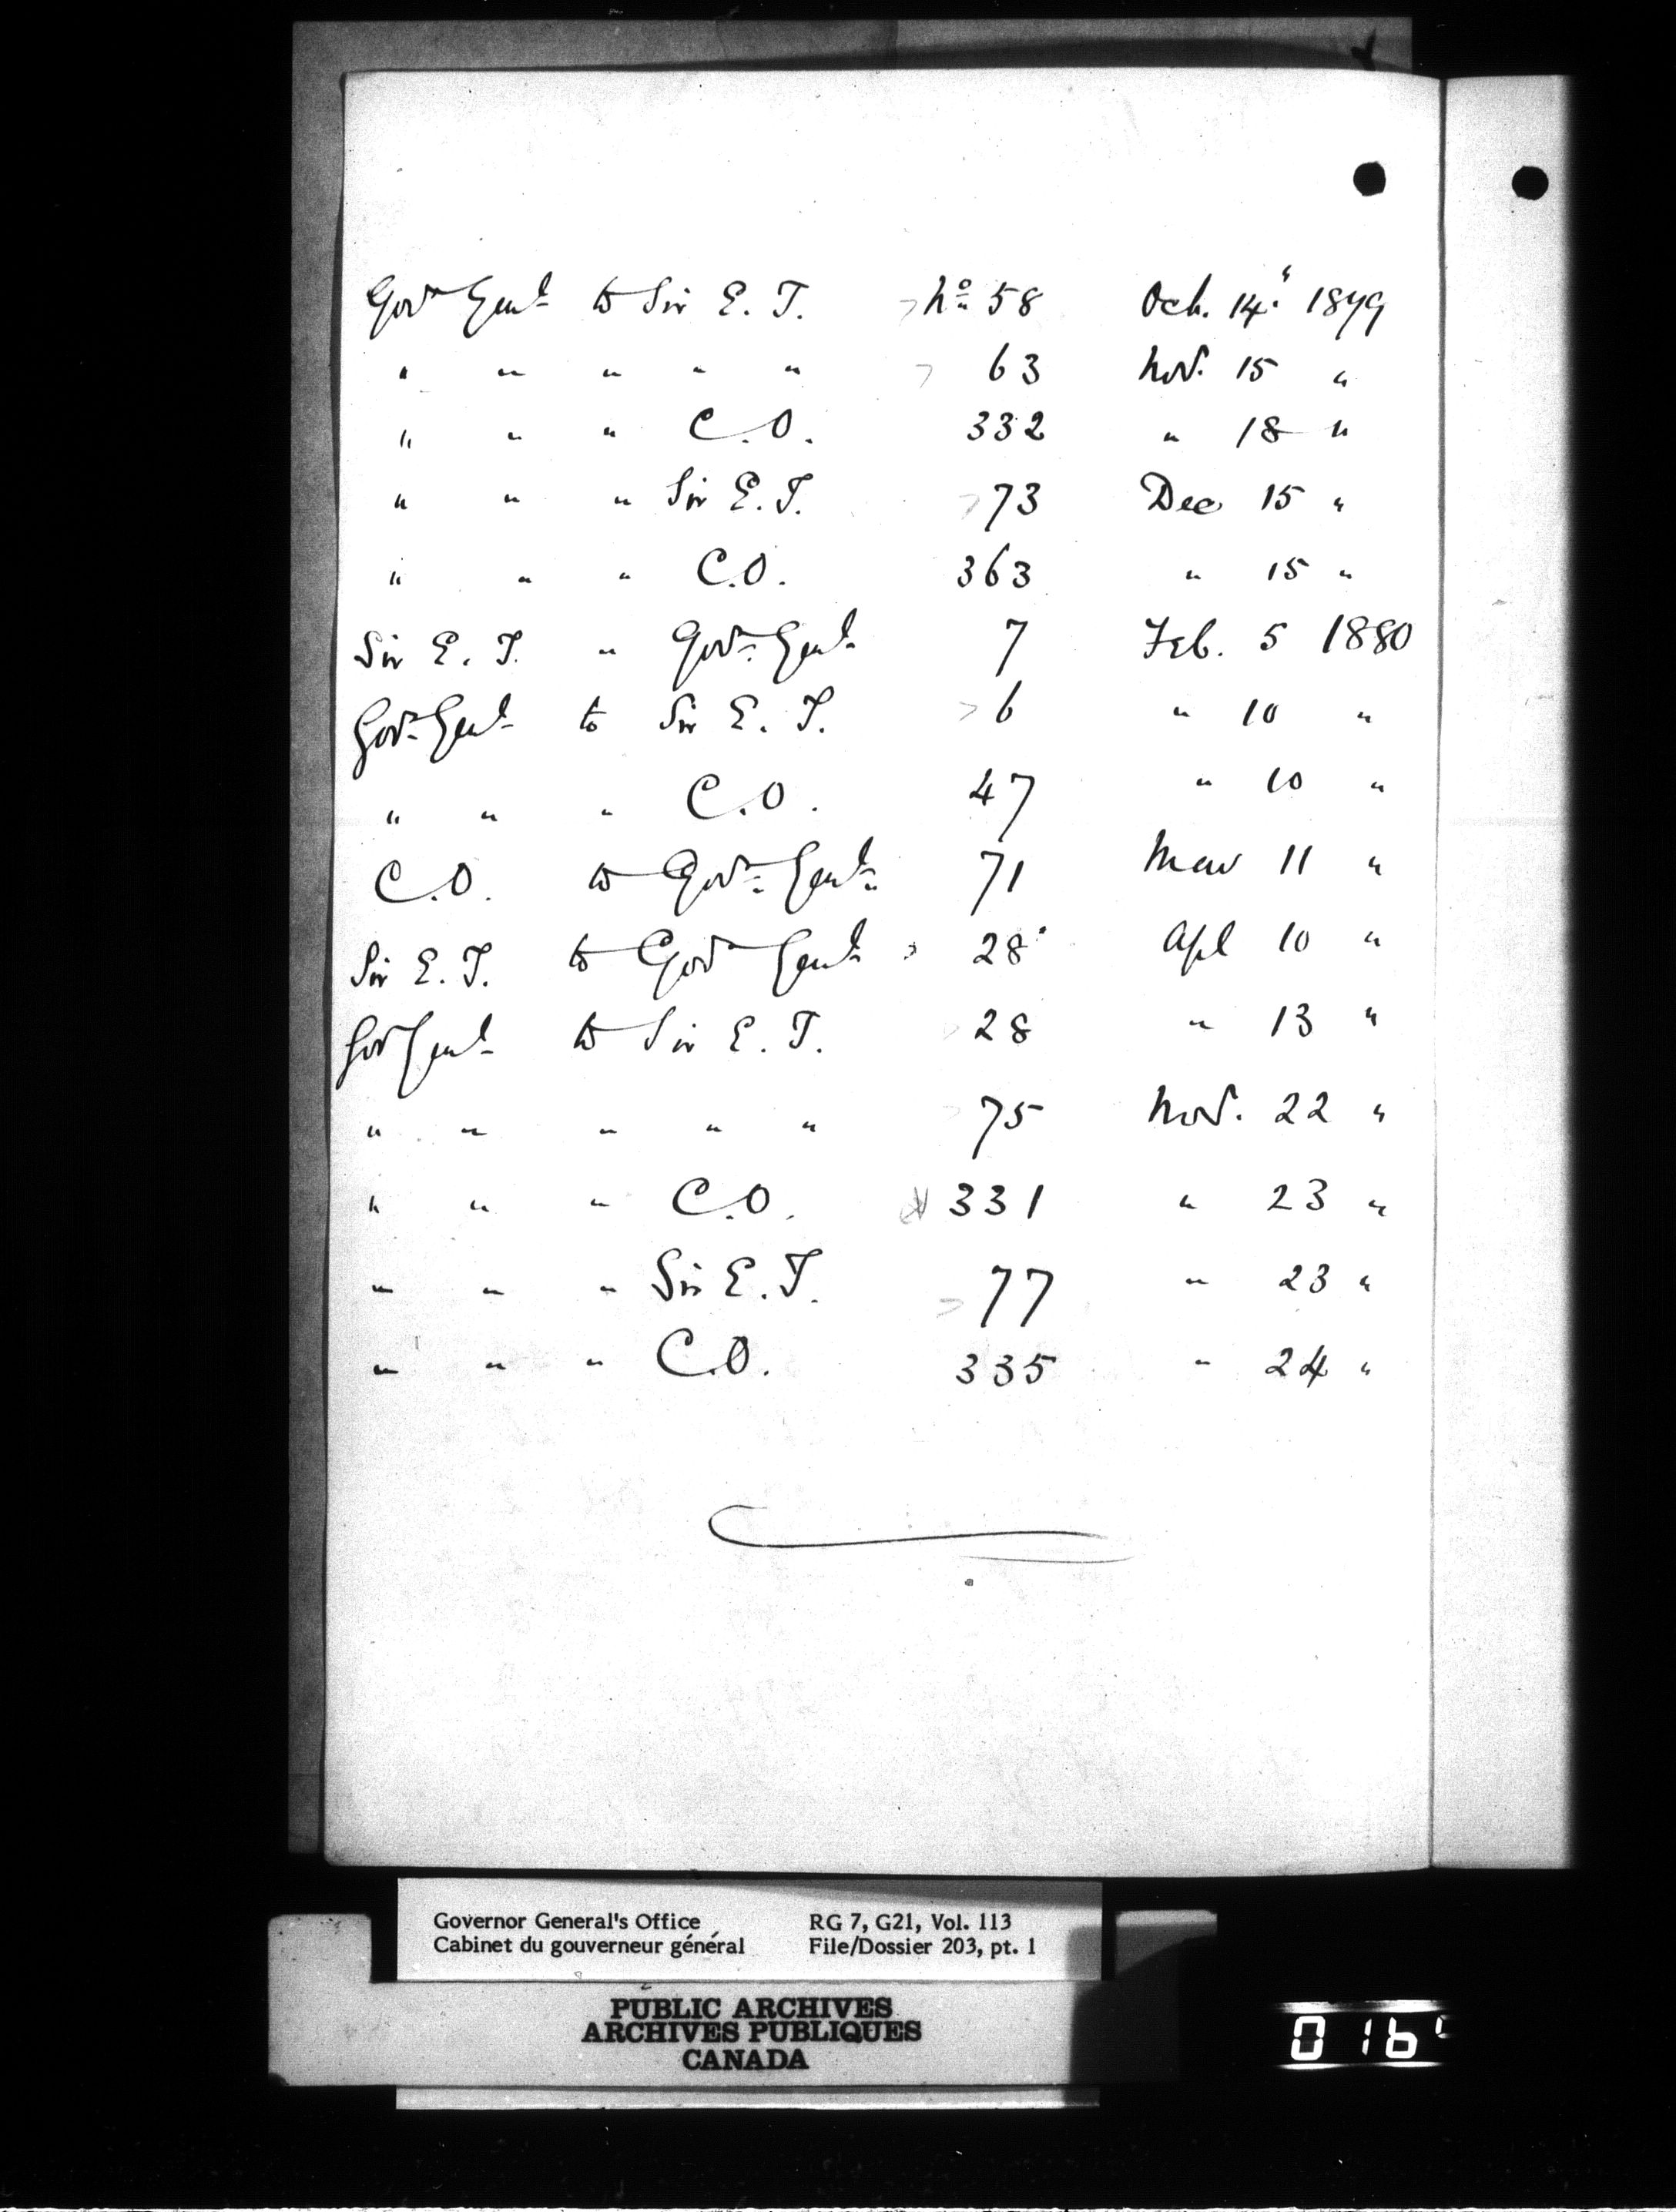 Govr Genl to Sir E. T. No 58 Oct. 14. 1879
" " " " " 63 Nov. 15 "
" " " C.O. 332 " 18 "
" " " Sir E. T. 73 Dec 15 "
" " " C.O. 363 " 15 "
Sir E. T. " Govr Genl 7 Feb. 5 1880
Govr Genl to Sir E. T. 6 " 10 "
" " " C.O. 47 " 10 "
C.O. to Govr Genl 71 Mar 11 "
Sir E. T. to Govr Genl 28 Apl 10 "
Gov Genl to Sir E. T. 28 " 13 "
" " " " " 75 Nov. 22 "
" " " C.O. 331 " 23 "
" " " Sir E. T. 77 " 23 "
" " " C.O. 335 " 24 "
Governor General's Office RG 7, G21, Vol. 113
Cabinet du gouverneur général File/Dossier 203, pt. 1
PUBLIC ARCHIVES
ARCHIVES PUBLIQUES
CANADA